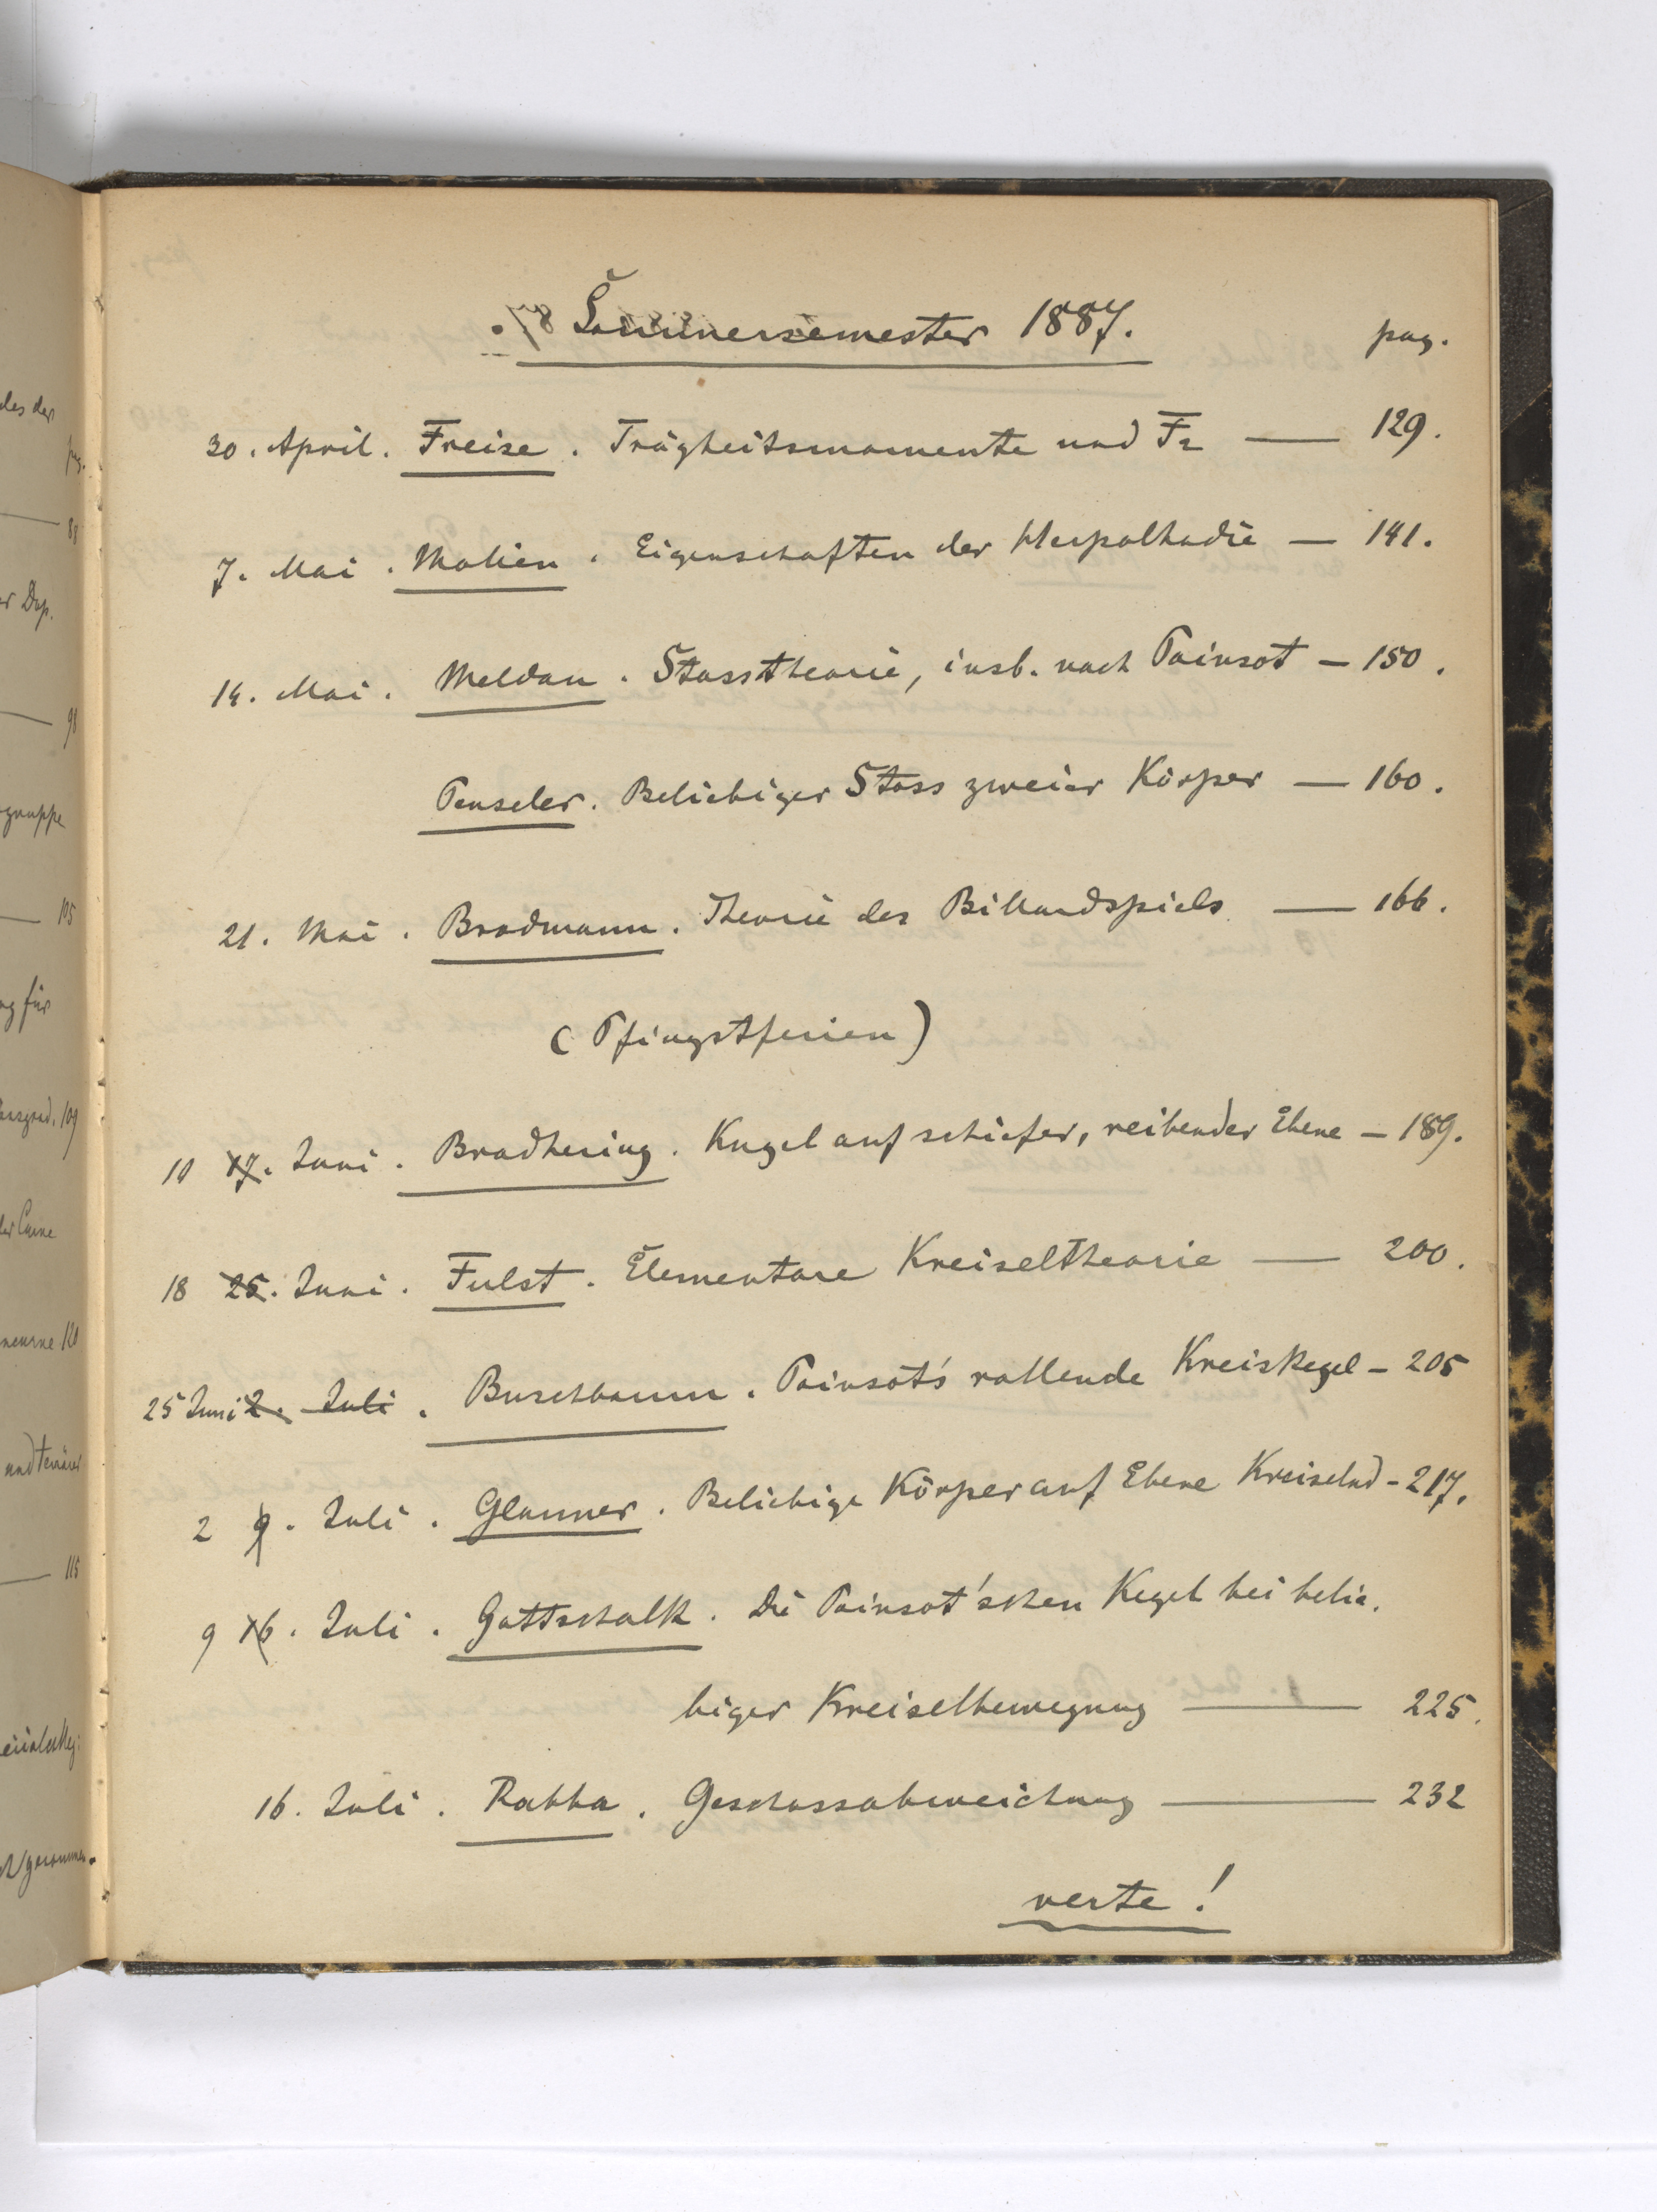 Sommersemester 1887.
pag.
30. April. Freise. Trägheitsmomente und F2 — 129.
7. Mai. Molien. Eigenschaften der Herpolhodie — 141.
14. Mai. Meldau. Stosstheorie, insb. nach Poinsot — 150.
Penseler. Beliebiger Stoss zweier Körper — 160.
21. Mai. Brodmann. Theorie des Billardspiels — 166.
(Pfingstferien)
10 17. Juni. Bradhering. Kugel auf schiefer, reibender Ebene — 189.
18 25. Juni. Fulst. Elementare Kreiseltheorie — 200.
25 Juni 2. Juli. Buschbaum. Poinsot's rollende Kreiskegel — 205
2 9. Juli. Glauner. Beliebige Körper auf Ebene Kreiselnd — 217.
9 16. Juli. Gottschalk. Die Poinsot'schen Kegel bei belie.
biger Kreiselbewegung — 225.
16. Juli. Rabba. Geschossabweichung — 232
verte!